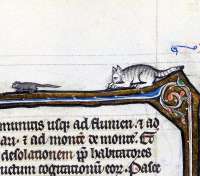 munitis usq; ad flumen. ⁊ ad
arı. ⁊ ad monte de monte. Et
desolationem pp habitatores
uctum cogitationū eor. Pasce